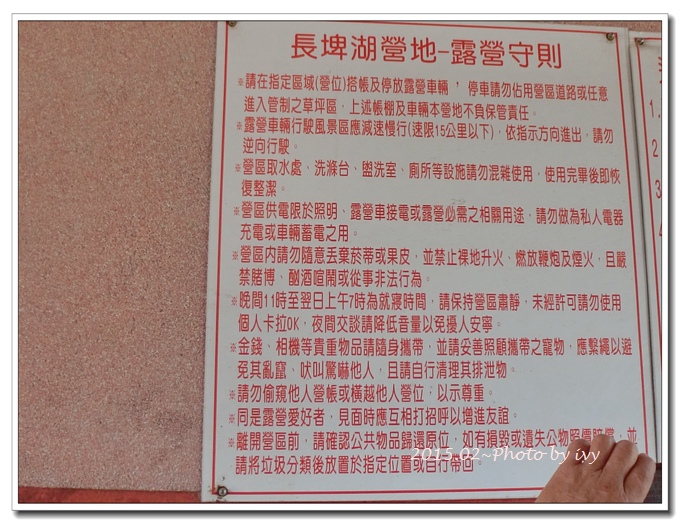 長埤湖營地-露營守則
※請在指定區域(營位)搭帳及停放露營車輛，停車請勿佔用營區道路或任意
進入管制之草坪區，上述帳棚及車輛本營地不負保管責任。
※露營車輛行駛風景區應減速慢行(速限15公里以下)，依指示方向進出，請勿
逆向行駛。
※營區取水處、洗滌台、盥洗室、廁所等設施請勿混雜使用，使用完畢後即恢
復整潔。
※營區供電限於照明、露營車接電或露營必需之相關用途，請勿做為私人電器
充電或車輛蓄電之用。
※營區內請勿隨意丟棄菸蒂或果皮，並禁止裸地升火、燃放鞭炮及煙火，且嚴
禁賭博、酗酒喧鬧或從事非法行為。
※晚間11時至翌日上午7時為就寢時間，請保持營區肅靜，未經許可請勿使用
個人卡拉OK，夜間交談請降低音量以免擾人安寧。
※金錢、相機等貴重物品請隨身攜帶，並請妥善照顧攜帶之寵物，應繫繩以避
免其亂竄、吠叫驚嚇他人，且請自行清理其排泄物。
※請勿偷窺他人營帳或橫越他人營位，以示尊重。
※同是露營愛好者，見面時應互相打招呼以增進友誼。
※離開營區前，請確認公共物品歸還原位，如有損毀或遺失公物照價賠償，並
請將垃圾分類後放置於指定位置或自行帶回。
2015.02~Photo by ivy
1.
2
3